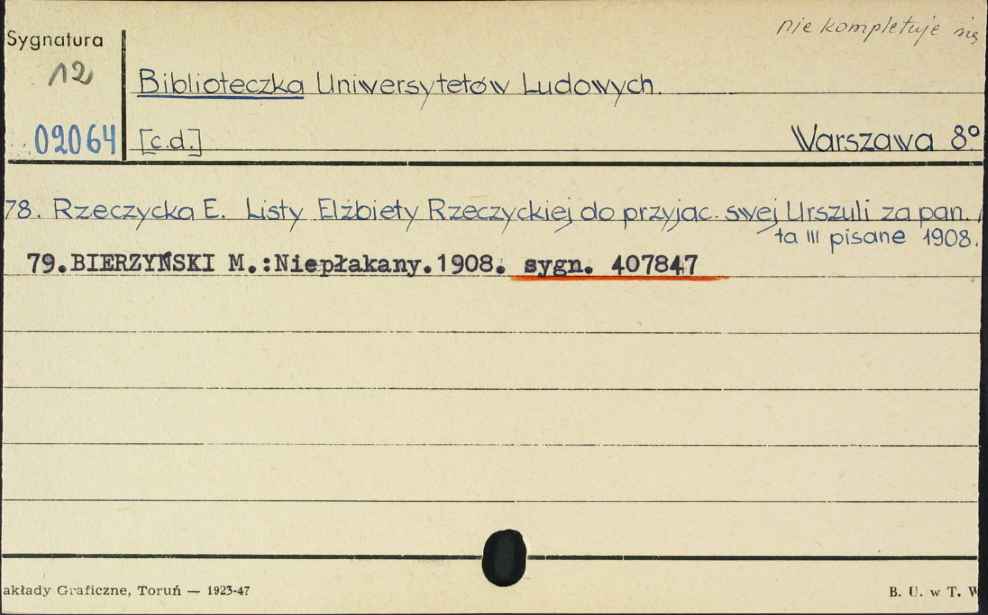 nie kompletuje się
Sygnatura
12
Biblioteczka Uniwersytetów Ludowych.
02064
[c.d.]
Warszawa 8°
78. Rzeczycka E. Listy Elżbiety Rzeczyckiej do przyjac. swej Urszuli za pan.
ta III pisane 1908.
79.BIERZYŃSKI M.:Niepłakany.1908. sygn. 407847
akłady Graficzne, Toruń — 1923-47
B. U. w T. W